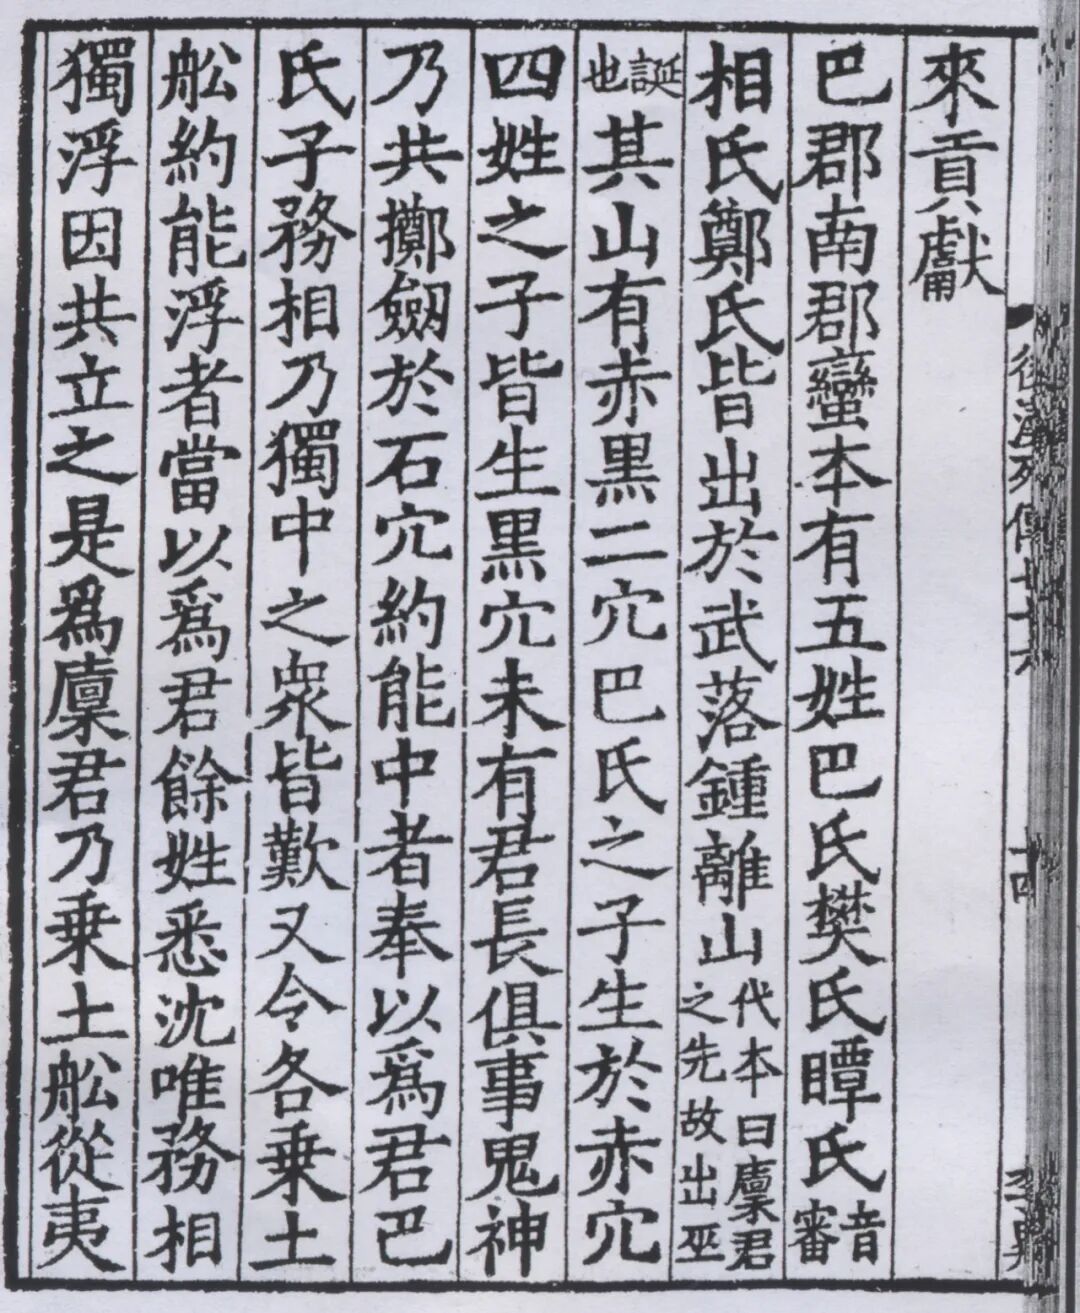 後漢列傳七十六
來貢獻
巴郡南郡蠻本有五姓巴氏樊氏瞫氏音審
相氏鄭氏皆出於武落鍾離山代本曰廩君之先故出巫
誕也其山有赤黑二穴巴氏之子生於赤穴
四姓之子皆生黑穴未有君長俱事鬼神
乃共擲劒於石穴約能中者奉以爲君巴
氏子務相乃獨中之衆皆歎又令各乗土
舩約能浮者當以爲君餘姓悉沈唯務相
獨浮因共立之是爲廩君乃乗土舩從夷